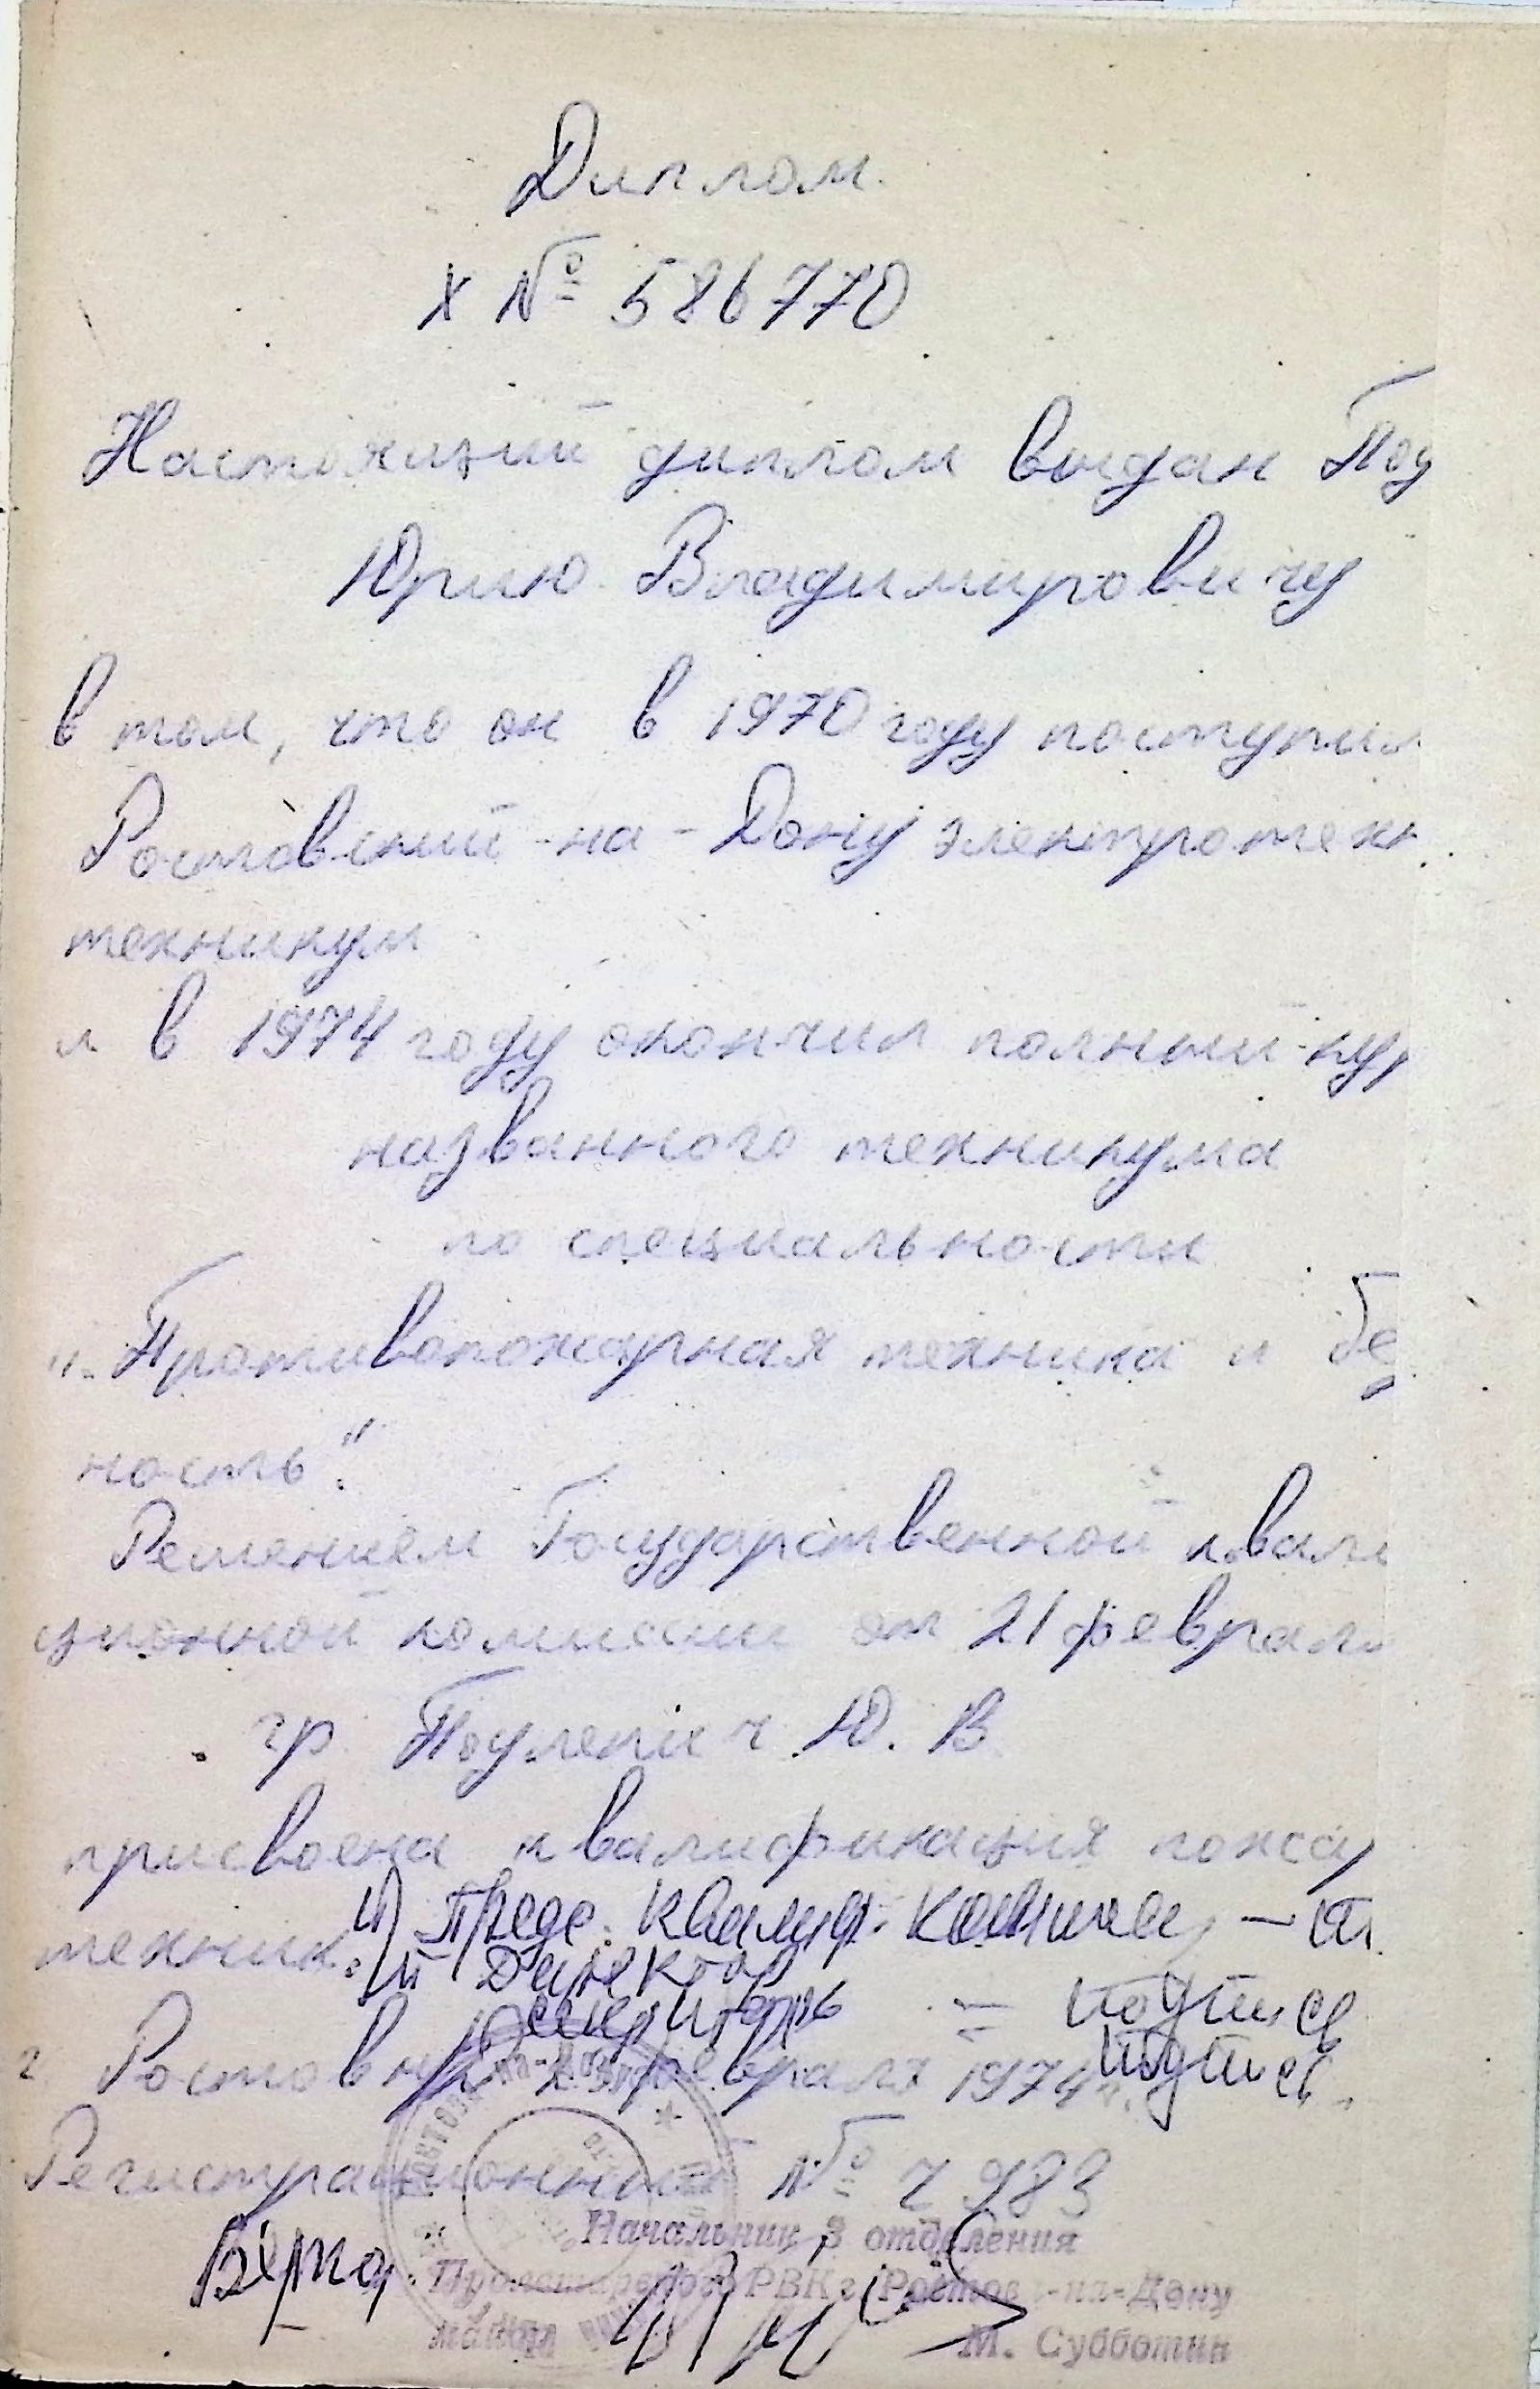 Диплом.
X № 586770
Настоящий диплом выдан Под
Юрию Владимировичу
в том, что он в 1970 году поступил
Ростовский-на-Дону электротехн
техникум
и в 1974 году окончил полный кур
названного техникума
по специальности
"Противопожарная техника и бе
ность".
Решением Государственной квали
ционной комиссии от 21 феврал
гр. Ю. В.
присвоена квалификация пожар
техник.
Пред. Квалиф. Комиссии —
Директор
Секретарь — подпись
подпись
г Ростов н/Д февраля 1974 г.
Регистрационный №
Верно:
Начальник 3 отделения
Пролетарского РВК г. Ростов-на-Дону
майор М. Субботин